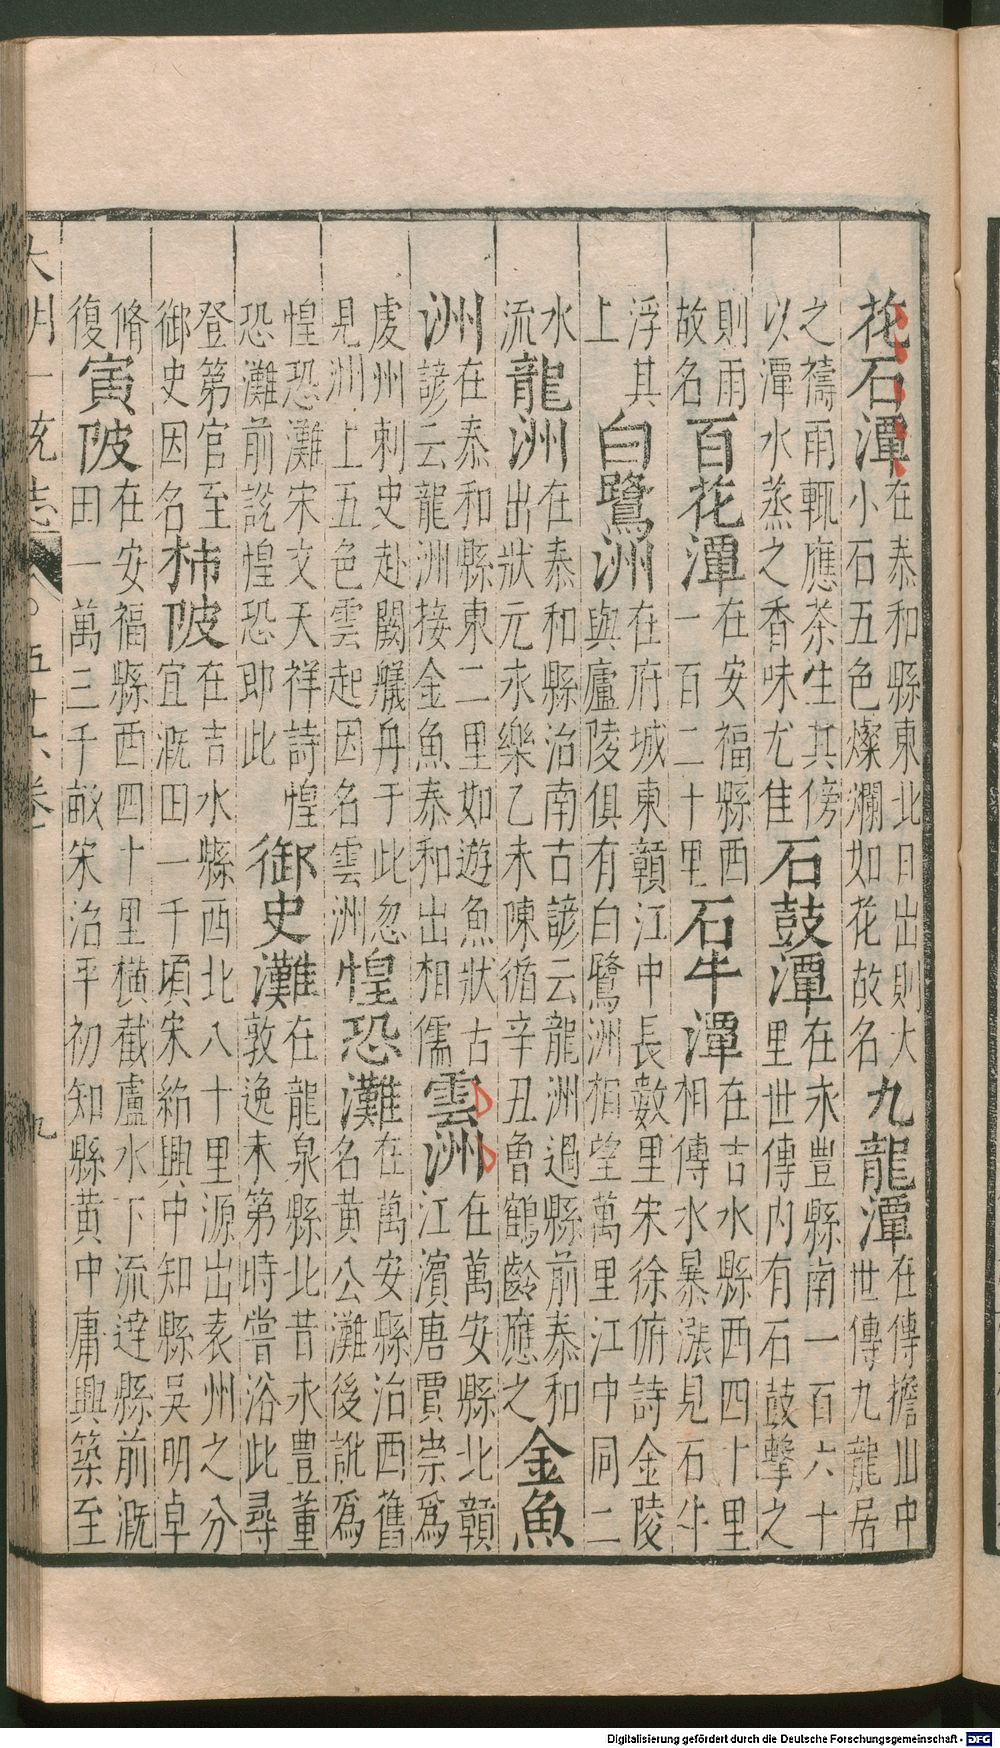 花石潭在泰和縣東北日出則大
小石五色燦斕如花故名九龍潭在傳擔山中
世傳九龍居
之禱雨輒應茶生其傍
以潭水蒸之香味尤佳石鼓潭在永豐縣南一百六十
里世傳內有石鼓擊之
則雨
故名百花潭在安福縣西
一百二十里石牛潭在吉水縣西四十里
相傳水暴漲見石牛
浮其
上白鷺洲在府城東贛江中長數里宋徐俯詩金陵
與廬陵俱有白鷺洲相望萬里江中同二
水
流龍洲在泰和縣治南古諺云龍洲過縣前泰和
出狀元永樂乙未陳循辛丑魯鶴齡應之金魚
洲在泰和縣東二里如遊魚狀古
諺云龍洲接金魚泰和出相儒雲洲在萬安縣北贛
江濱唐賈崇為
虔州刺史赴闕艤舟于此忽
見洲上五色雲起因名雲洲惶恐灘在萬安縣治西舊
名黃公灘後訛為
惶恐灘宋文天祥詩惶
恐灘前說惶恐即此御史灘在龍泉縣北昔永豐董
敦逸未第時嘗浴此尋
登第官至
御史因名柿陂在吉水縣西北八十里源出袁州之分
宜溉田一千頃宋紹興中知縣吳明卓
脩
復寅陂在安福縣西四十里橫截廬水下流達縣前溉
田一萬三千畝宋治平初知縣黃中庸興築至
大明一統志 五十六卷 九
Digitalisierung gefördert durch die Deutsche Forschungsgemeinschaft - DFG